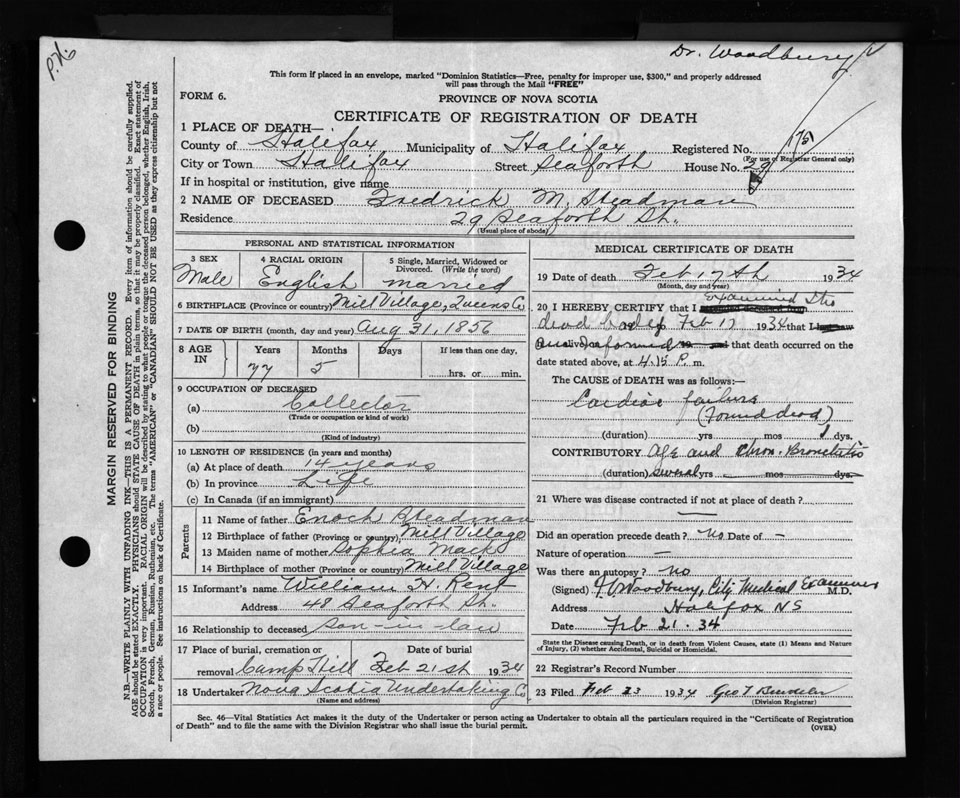 P.N.S
Dr. Woodbury
This form if placed in an envelope, marked "Dominion Statistics—Free, penalty for improper use, $300," and properly addressed
will pass through the Mail "FREE"
FORM 6.
PROVINCE OF NOVA SCOTIA
CERTIFICATE OF REGISTRATION OF DEATH
1 PLACE OF DEATH—
County of Halifax Municipality of Halifax Registered No.
(For use of Registrar General only)
City or Town Halifax Street Seaforth House No. 29
If in hospital or institution, give name
2 NAME OF DECEASED Fredrick M. Steadman
Residence 29 Seaforth St.
(Usual place of abode)
PERSONAL AND STATISTICAL INFORMATION
3 SEX 4 RACIAL ORIGIN 5 Single, Married, Widowed or
Divorced. (Write the word)
Male English married
6 BIRTHPLACE (Province or country) Mill Village, Queens Co
7 DATE OF BIRTH (month, day and year) Aug 31, 1856
8 AGE IN Years Months Days If less than one day,
77 5 hrs. or min.
9 OCCUPATION OF DECEASED
(a) Collector
(Trade or occupation or kind of work)
(b)
(Kind of industry)
10 LENGTH OF RESIDENCE (in years and months)
(a) At place of death 14 years
(b) In province Life
(c) In Canada (if an immigrant)
Parents
11 Name of father Enoch Steadman
12 Birthplace of father (Province or country) Mill Village
13 Maiden name of mother Sophia Mack
14 Birthplace of mother (Province or country) Mill Village
15 Informant's name William H. Rent
Address 48 Seaforth St.
16 Relationship to deceased son-in-law
17 Place of burial, cremation or Date of burial
removal Camp Hill Feb 21st 1934
18 Undertaker Nova Scotia Undertaking Co
(Name and address)
MEDICAL CERTIFICATE OF DEATH
19 Date of death Feb 17th 1934
(Month, day and year)
20 I HEREBY CERTIFY that I examined the
dead body Feb 17 1934 that I
that death occurred on the
date stated above, at 4.15 P. m.
The CAUSE of DEATH was as follows:—
Cardiac failure
(Found dead)
(duration) yrs mos dys.
CONTRIBUTORY Age and Chron. Bronchitis
(duration) several yrs mos dys.
21 Where was disease contracted if not at place of death?
Did an operation precede death? No Date of —
Nature of operation —
Was there an autopsy? no
(Signed) Woodbury, City Medical Examiner M.D.
Address Halifax NS
Date Feb 21. 34
State the Disease causing Death, or in death from Violent Causes, state (1) Means and Nature
of Injury, (2) whether Accidental, Suicidal or Homicidal.
22 Registrar's Record Number
23 Filed Feb 23 1934 Geo T
(Division Registrar)
Sec. 46—Vital Statistics Act makes it the duty of the Undertaker or person acting as Undertaker to obtain all the particulars required in the "Certificate of Registration
of Death" and to file the same with the Division Registrar who shall issue the burial permit.
(OVER)
MARGIN RESERVED FOR BINDING
N.B.—WRITE PLAINLY WITH UNFADING INK—THIS IS A PERMANENT RECORD. Every item of information should be carefully supplied.
AGE should be stated EXACTLY. PHYSICIANS should STATE CAUSE OF DEATH in plain terms, so that it may be properly classified. Exact statement of
OCCUPATION is very important. RACIAL ORIGIN will be described by stating to what people or tongue the deceased person belonged, whether English, Irish,
Scotch, French, German, Russian, Ruthenian, etc. The terms "AMERICAN" or "CANADIAN" SHOULD NOT BE USED as they express citizenship but not
a race or people. See instructions on back of Certificate.